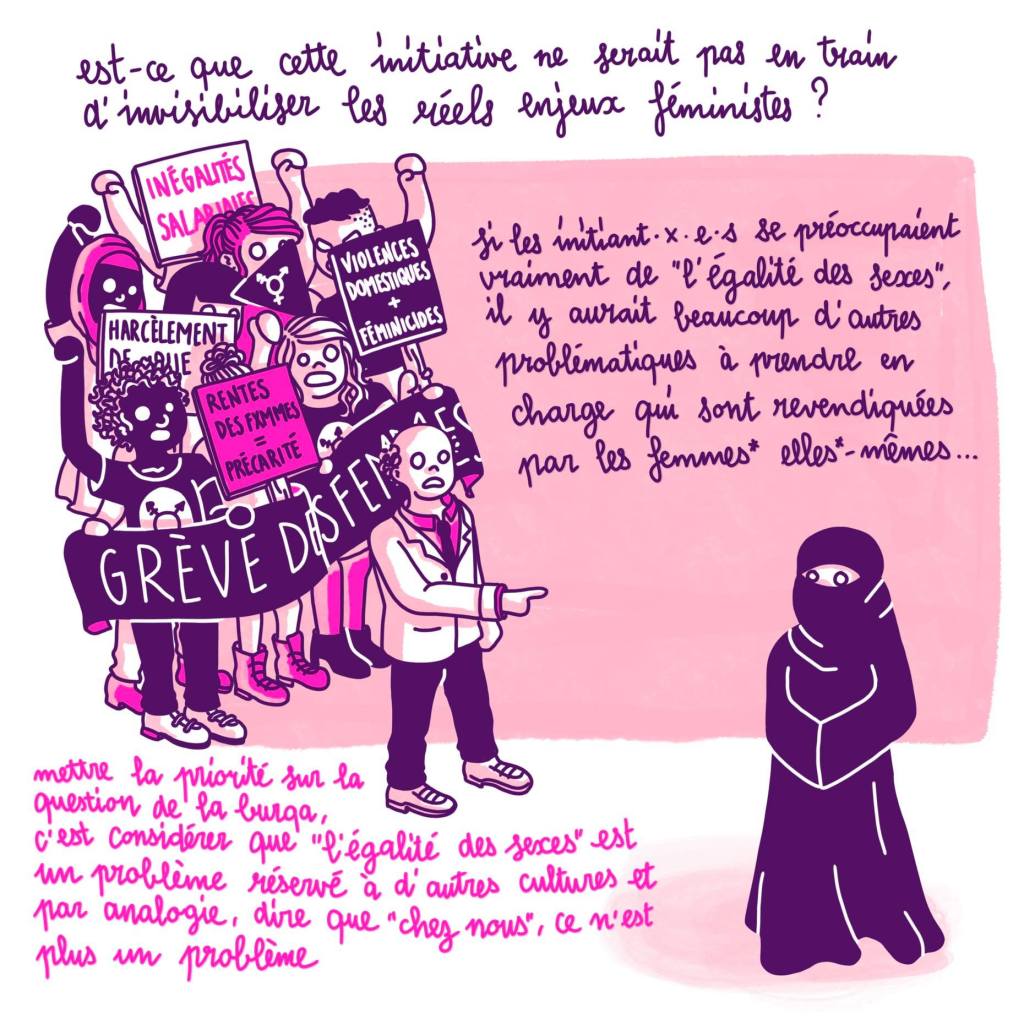 est-ce que cette initiative ne serait pas en train
d'invisibiliser les réels enjeux féministes ?
INÉGALITÉS
SALARIALES
VIOLENCES
DOMESTIQUES
+
FÉMINICIDES
HARCÈLEMENT
DE RUE
RENTES
DES FXMMES
=
PRÉCARITÉ
GRÈVE DES FEM
si les initiant·x·e·s se préoccupaient
vraiment de "l'égalité des sexes",
il y aurait beaucoup d'autres
problématiques à prendre en
charge qui sont revendiquées
par les femmes* elles*-mêmes...
mettre la priorité sur la
question de la burqa,
c'est considérer que "l'égalité des sexes" est
un problème réservé à d'autres cultures et
par analogie, dire que "chez nous", ce n'est
plus un problème